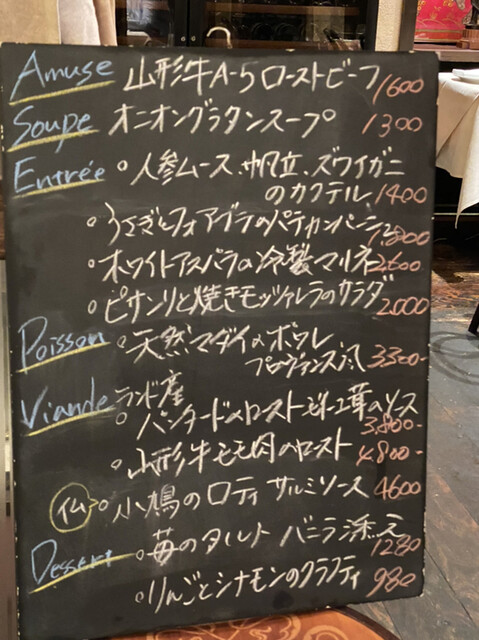 Amuse 山形牛A-5ローストビーフ 1600
Soupe オニオングラタンスープ 1300
Entrée ○人参ムース、帆立、ズワイガニ
のカクテル 1400
○うさぎとフォアグラのパテカンパーニュ
1,800
○ホワイトアスパラの冷製マリネ 2600
○ピサンリと焼きモッツァレラのサラダ
2000
Poisson ○天然マダイのポワレ
プロヴァンス風 3300-
Viande ランド産
○パンタードのロースト モリーユ茸のソース
3,800-
○山形牛モモ肉のロースト 4800-
仏 ○小鳩のロティ サルミソース 4600
Dessert ○苺のタルト バニラ添え
1280
○りんごとシナモンのクラフティ 980